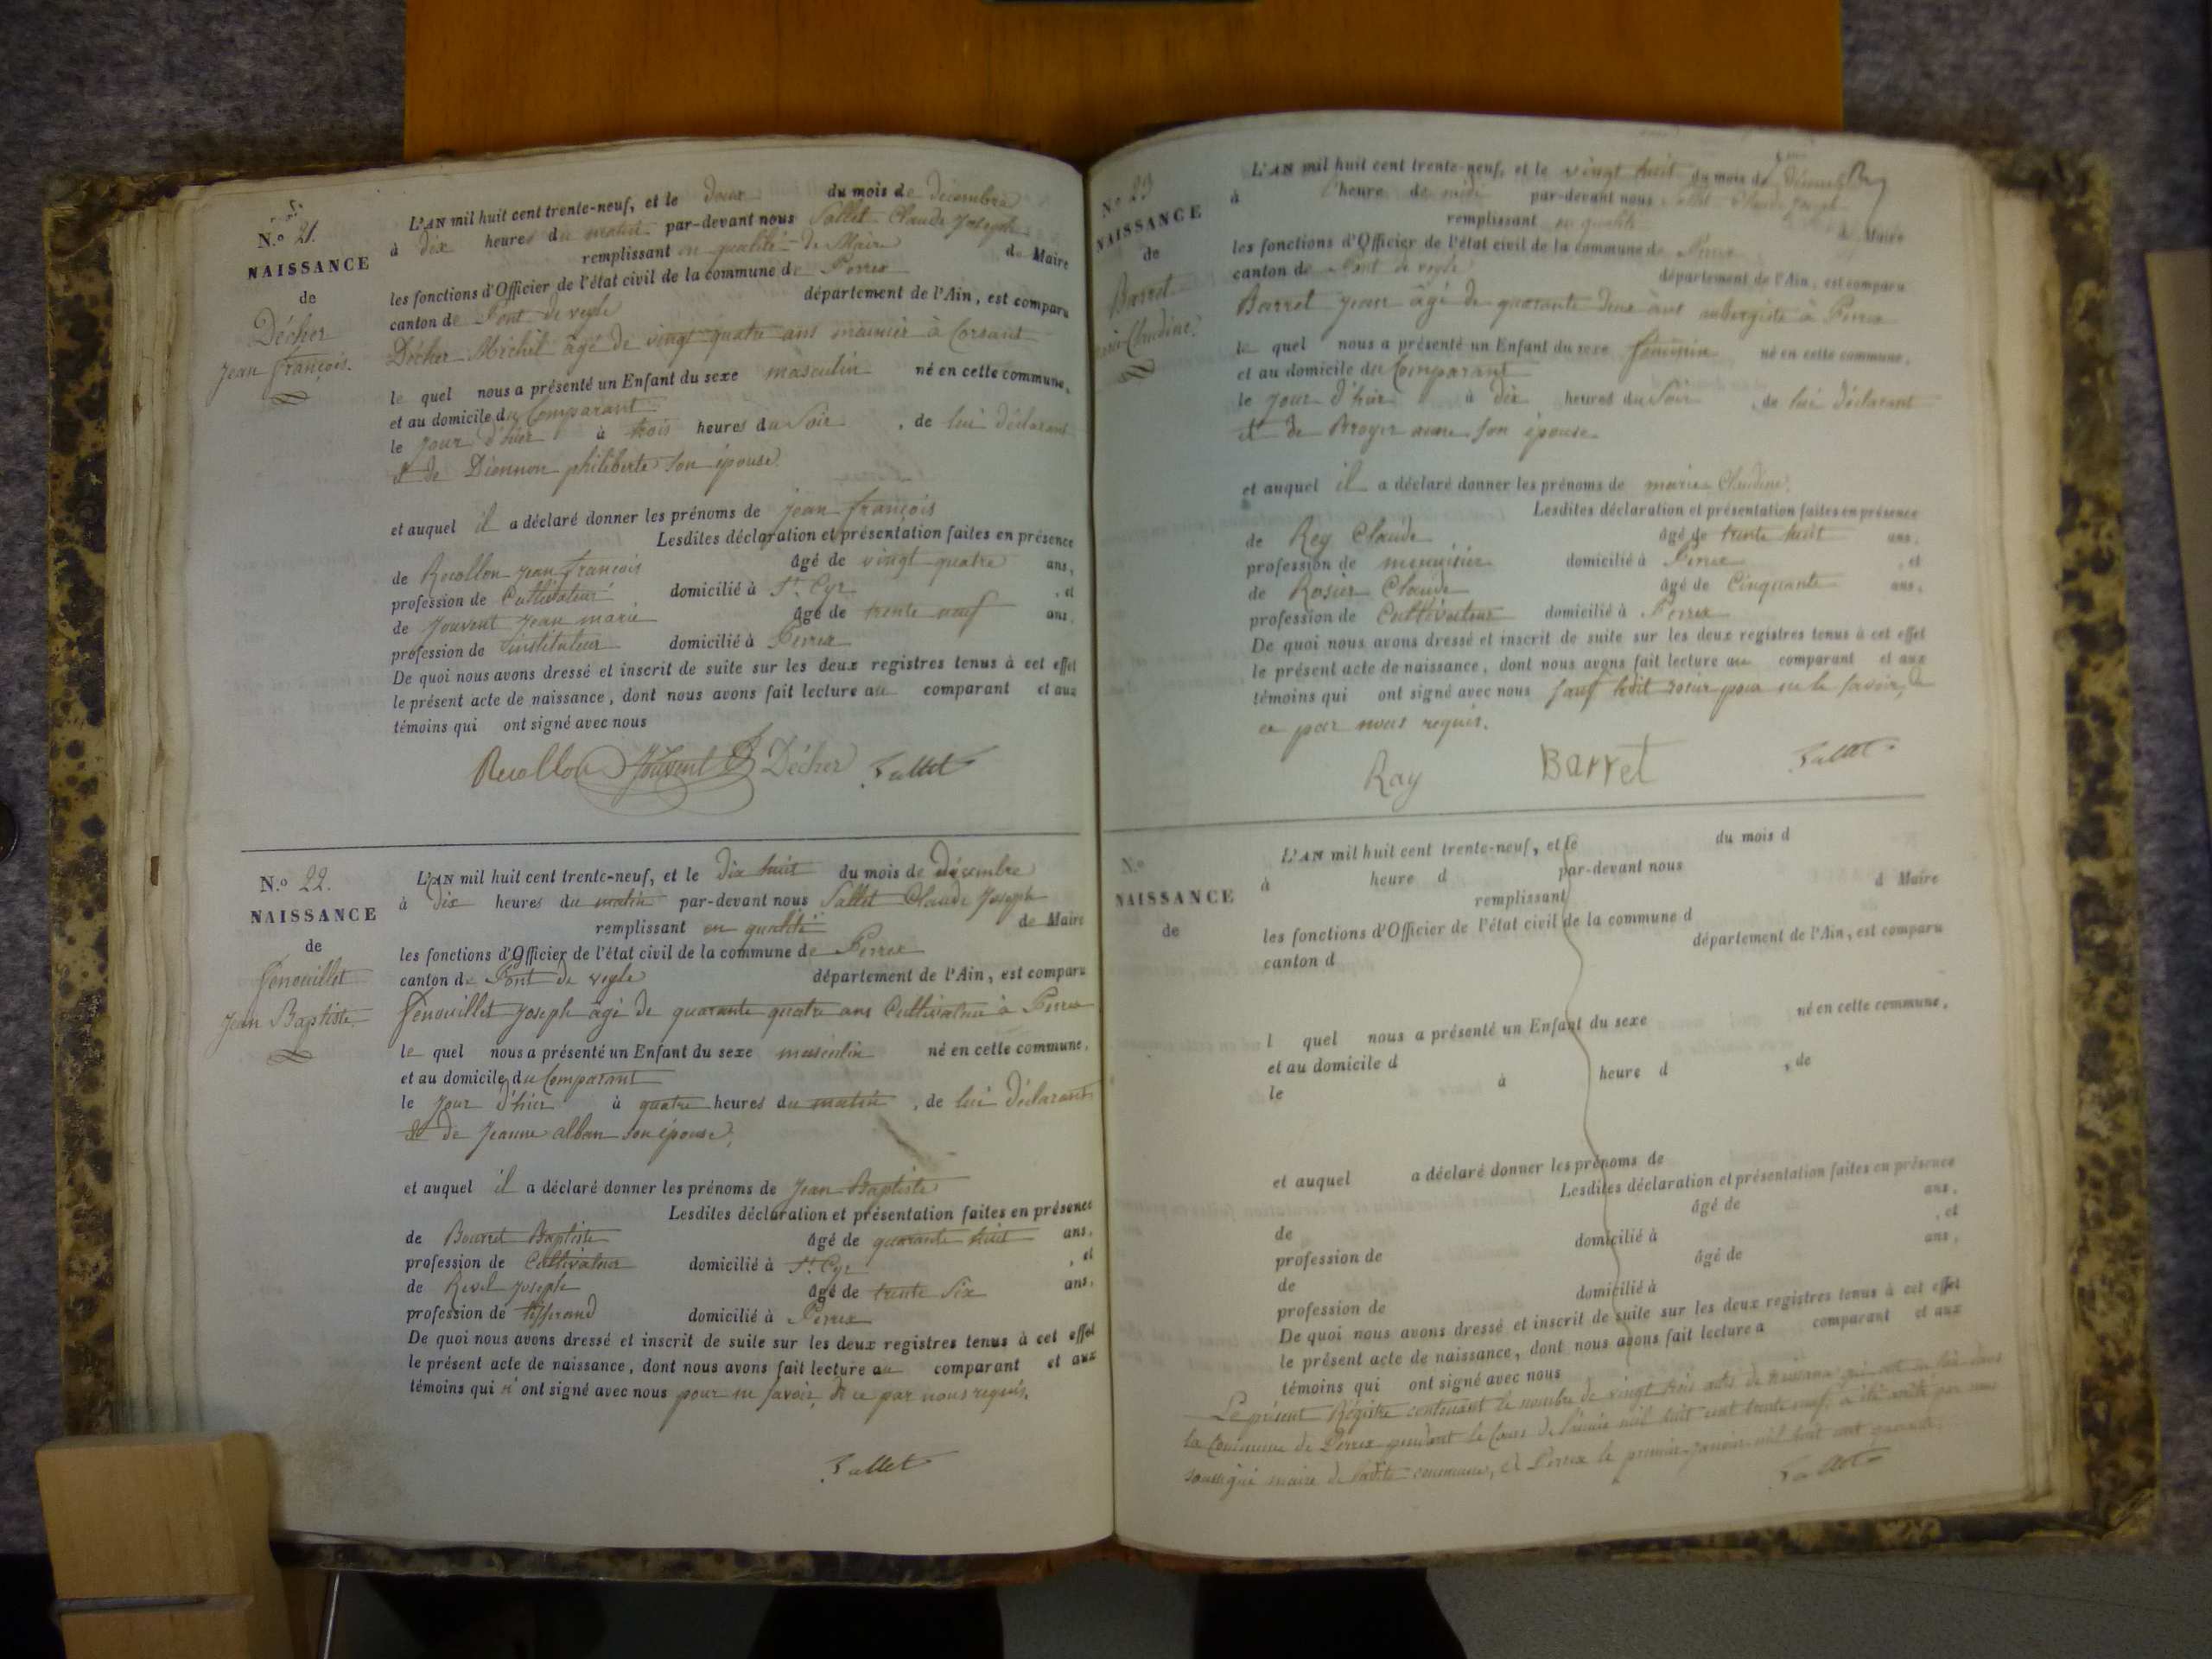 N.o 21.
NAISSANCE
de
Décher
Jean François.
L'AN mil huit cent trente-neuf, et le deux du mois de décembre
à dix heures du matin par-devant nous Sallet Claude Joseph
remplissant en qualité de Maire de Maire
les fonctions d'Officier de l'état civil de la commune de Perrex
canton de Pont de veyle département de l'Ain, est comparu
Décher Michel âgé de vingt quatre ans meunier à Corsant
le quel nous a présenté un Enfant du sexe masculin né en cette commune,
et au domicile du Comparant
le jour d'hier à trois heures du soir , de lui déclarant
et de Diennon philiberte son épouse.
et auquel il a déclaré donner les prénoms de jean françois
Lesdites déclaration et présentation faites en présence
de Recollon jean françois âgé de vingt quatre ans,
profession de Cultivateur domicilié à St. Cyr , et
de Jouvent jean marie âgé de trente neuf ans,
profession de instituteur domicilié à Perrex
De quoi nous avons dressé et inscrit de suite sur les deux registres tenus à cet effet
le présent acte de naissance, dont nous avons fait lecture au comparant et aux
témoins qui ont signé avec nous
Recollon Jouvent Décher Sallet
N.o 22.
NAISSANCE
de
fenouillet
Jean Baptiste.
L'AN mil huit cent trente-neuf, et le dix huit du mois de décembre
à dix heures du matin par-devant nous Sallet Claude Joseph
remplissant en qualité de Maire
les fonctions d'Officier de l'état civil de la commune de Perrex
canton de Pont de veyle département de l'Ain, est comparu
fenouillet joseph âgé de quarante quatre ans Cultivateur à Perrex
le quel nous a présenté un Enfant du sexe masculin né en cette commune,
et au domicile du Comparant
le jour d'hier à quatre heures du matin , de lui déclarant
et de jeanne alban son épouse,
et auquel il a déclaré donner les prénoms de jean Baptiste
Lesdites déclaration et présentation faites en présence
de Bourret Baptiste âgé de quarante huit ans,
profession de Cultivateur domicilié à St. Cyr , et
de Revel joseph âgé de trente six ans,
profession de tisserand domicilié à Perrex
De quoi nous avons dressé et inscrit de suite sur les deux registres tenus à cet effet
le présent acte de naissance, dont nous avons fait lecture au comparant et aux
témoins qui n'ont signé avec nous pour ne savoir, de ce par nous requis.
Sallet
N.o 23
NAISSANCE
de
Barret
Marie Claudine.
L'AN mil huit cent trente-neuf, et le vingt huit du mois de décembre
à l'heure de midi par-devant nous Sallet Claude Joseph
remplissant en qualité de Maire
les fonctions d'Officier de l'état civil de la commune de Perrex
canton de Pont de veyle département de l'Ain, est comparu
Barret jean âgé de quarante deux ans aubergiste à Perrex
le quel nous a présenté un Enfant du sexe féminin né en cette commune,
et au domicile du Comparant
le jour d'hier à dix heures du soir , de lui déclarant
et de Broyer anne son épouse
et auquel il a déclaré donner les prénoms de marie Claudine.
Lesdites déclaration et présentation faites en présence
de Rey Claude âgé de trente huit ans,
profession de menuisier domicilié à Perrex , et
de Rosier Claude âgé de Cinquante ans,
profession de Cultivateur domicilié à Perrex
De quoi nous avons dressé et inscrit de suite sur les deux registres tenus à cet effet
le présent acte de naissance, dont nous avons fait lecture au comparant et aux
témoins qui ont signé avec nous sauf ledit rosier pour ne le savoir, de
ce par nous requis.
Ray Barret Sallet
N.o
NAISSANCE
de
L'AN mil huit cent trente-neuf, et le du mois d
à heure d par-devant nous
remplissant d Maire
les fonctions d'Officier de l'état civil de la commune d
canton d département de l'Ain, est comparu
l quel nous a présenté un Enfant du sexe né en cette commune,
et au domicile d
le à heure d , de
et auquel a déclaré donner les prénoms de
Lesdites déclaration et présentation faites en présence
de âgé de ans,
profession de domicilié à , et
de âgé de ans,
profession de domicilié à
De quoi nous avons dressé et inscrit de suite sur les deux registres tenus à cet effet
le présent acte de naissance, dont nous avons fait lecture a comparant et aux
témoins qui ont signé avec nous
Le présent Régistre contenant le nombre de vingt trois actes de naissance qui ont eu lieu dans
la Commune de Perrex pendant le Cours de l'année mil huit cent trente neuf, a été arrêté par nous
soussigné maire de ladite commune, à Perrex le premier janvier mil huit cent quarante.
Sallet